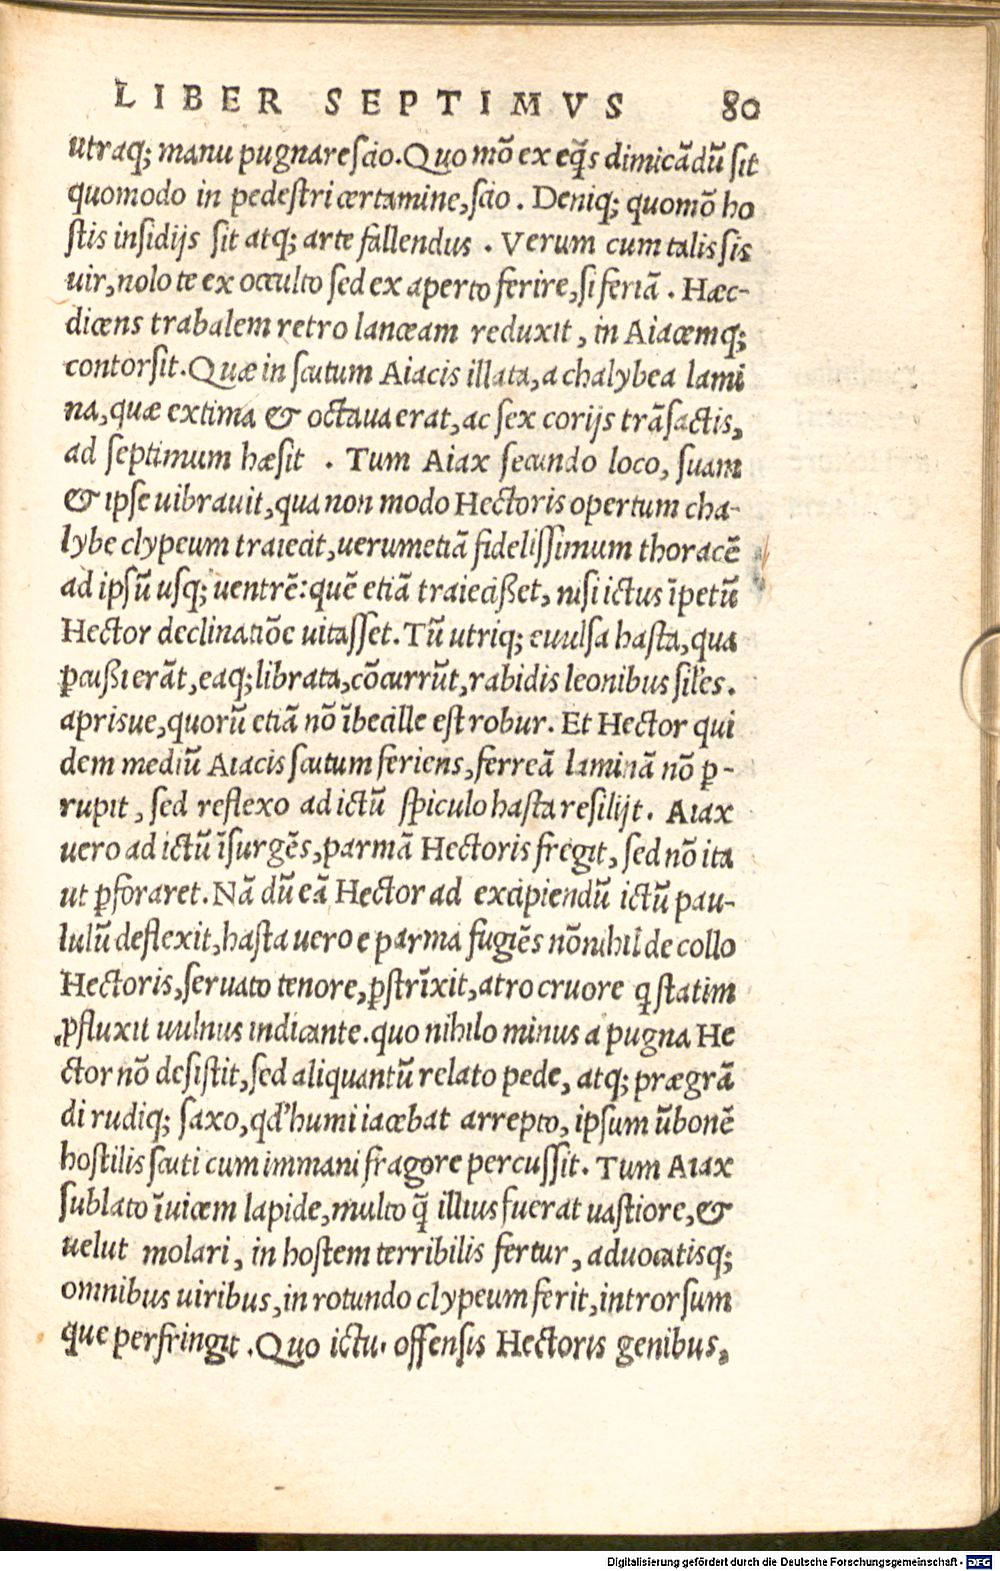 LIBER SEPTIMVS 80
utraq; manu pugnare scio. Quo mõ ex eq̃s dimicãdũ sit
quomodo in pedestri certamine, scio. Deniq; quomõ ho
stis insidijs sit atq; arte fallendus. Verum cum talis sis
uir, nolo te ex occulto sed ex aperto ferire, si feriã. Hæc-
dicens trabalem retro lanceam reduxit, in Aiacemq;
contorsit. Quæ in scutum Aiacis illata, a chalybea lami
na, quæ extima & octaua erat, ac sex corijs trãsactis,
ad septimum hæsit. Tum Aiax secundo loco, suam
& ipse uibrauit, qua non modo Hectoris opertum cha-
lybe clypeum traiecit, uerumetiã fidelissimum thoracẽ
ad ipsũ usq; uentrẽ: quẽ etiã traiecißet, nisi ictus ĩpetũ
Hector declinatiõe uitasset. Tũ utriq; euulsa hasta, qua
ꝑcußi erãt, eaq; librata, cõcurrũt, rabidis leonibus sil'es.
aprisue, quorũ etiã nõ ĩbecille est robur. Et Hector qui
dem mediũ Aiacis scutum feriens, ferreã laminã nõ ꝑ-
rupit, sed reflexo ad ictũ spiculo hasta resilijt. Aiax
uero ad ictũ ĩsurgẽs, parmã Hectoris fregit, sed nõ ita
ut ꝑforaret. Nã dũ eã Hector ad excipiendũ ictũ pau-
lulũ deflexit, hasta uero e parma fugiẽs nõnihil de collo
Hectoris, seruato tenore, ꝑstrĩxit, atro cruore q statim
ꝓfluxit uulnus indicante. quo nihilo minus a pugna He
ctor nõ desistit, sed aliquantũ relato pede, atq; prægrã
di rudiq; saxo, qd' humi iacebat arrepto, ipsum ũbonẽ
hostilis scuti cum immani fragore percussit. Tum Aiax
sublato ĩuicem lapide, multo q̃ illius fuerat uastiore, &
uelut molari, in hostem terribilis fertur, aduocatisq;
omnibus uiribus, in rotundo clypeum ferit, introrsum
que perfringit. Quo ictu, offensis Hectoris genibus,
Digitalisierung gefördert durch die Deutsche Forschungsgemeinschaft - DFG